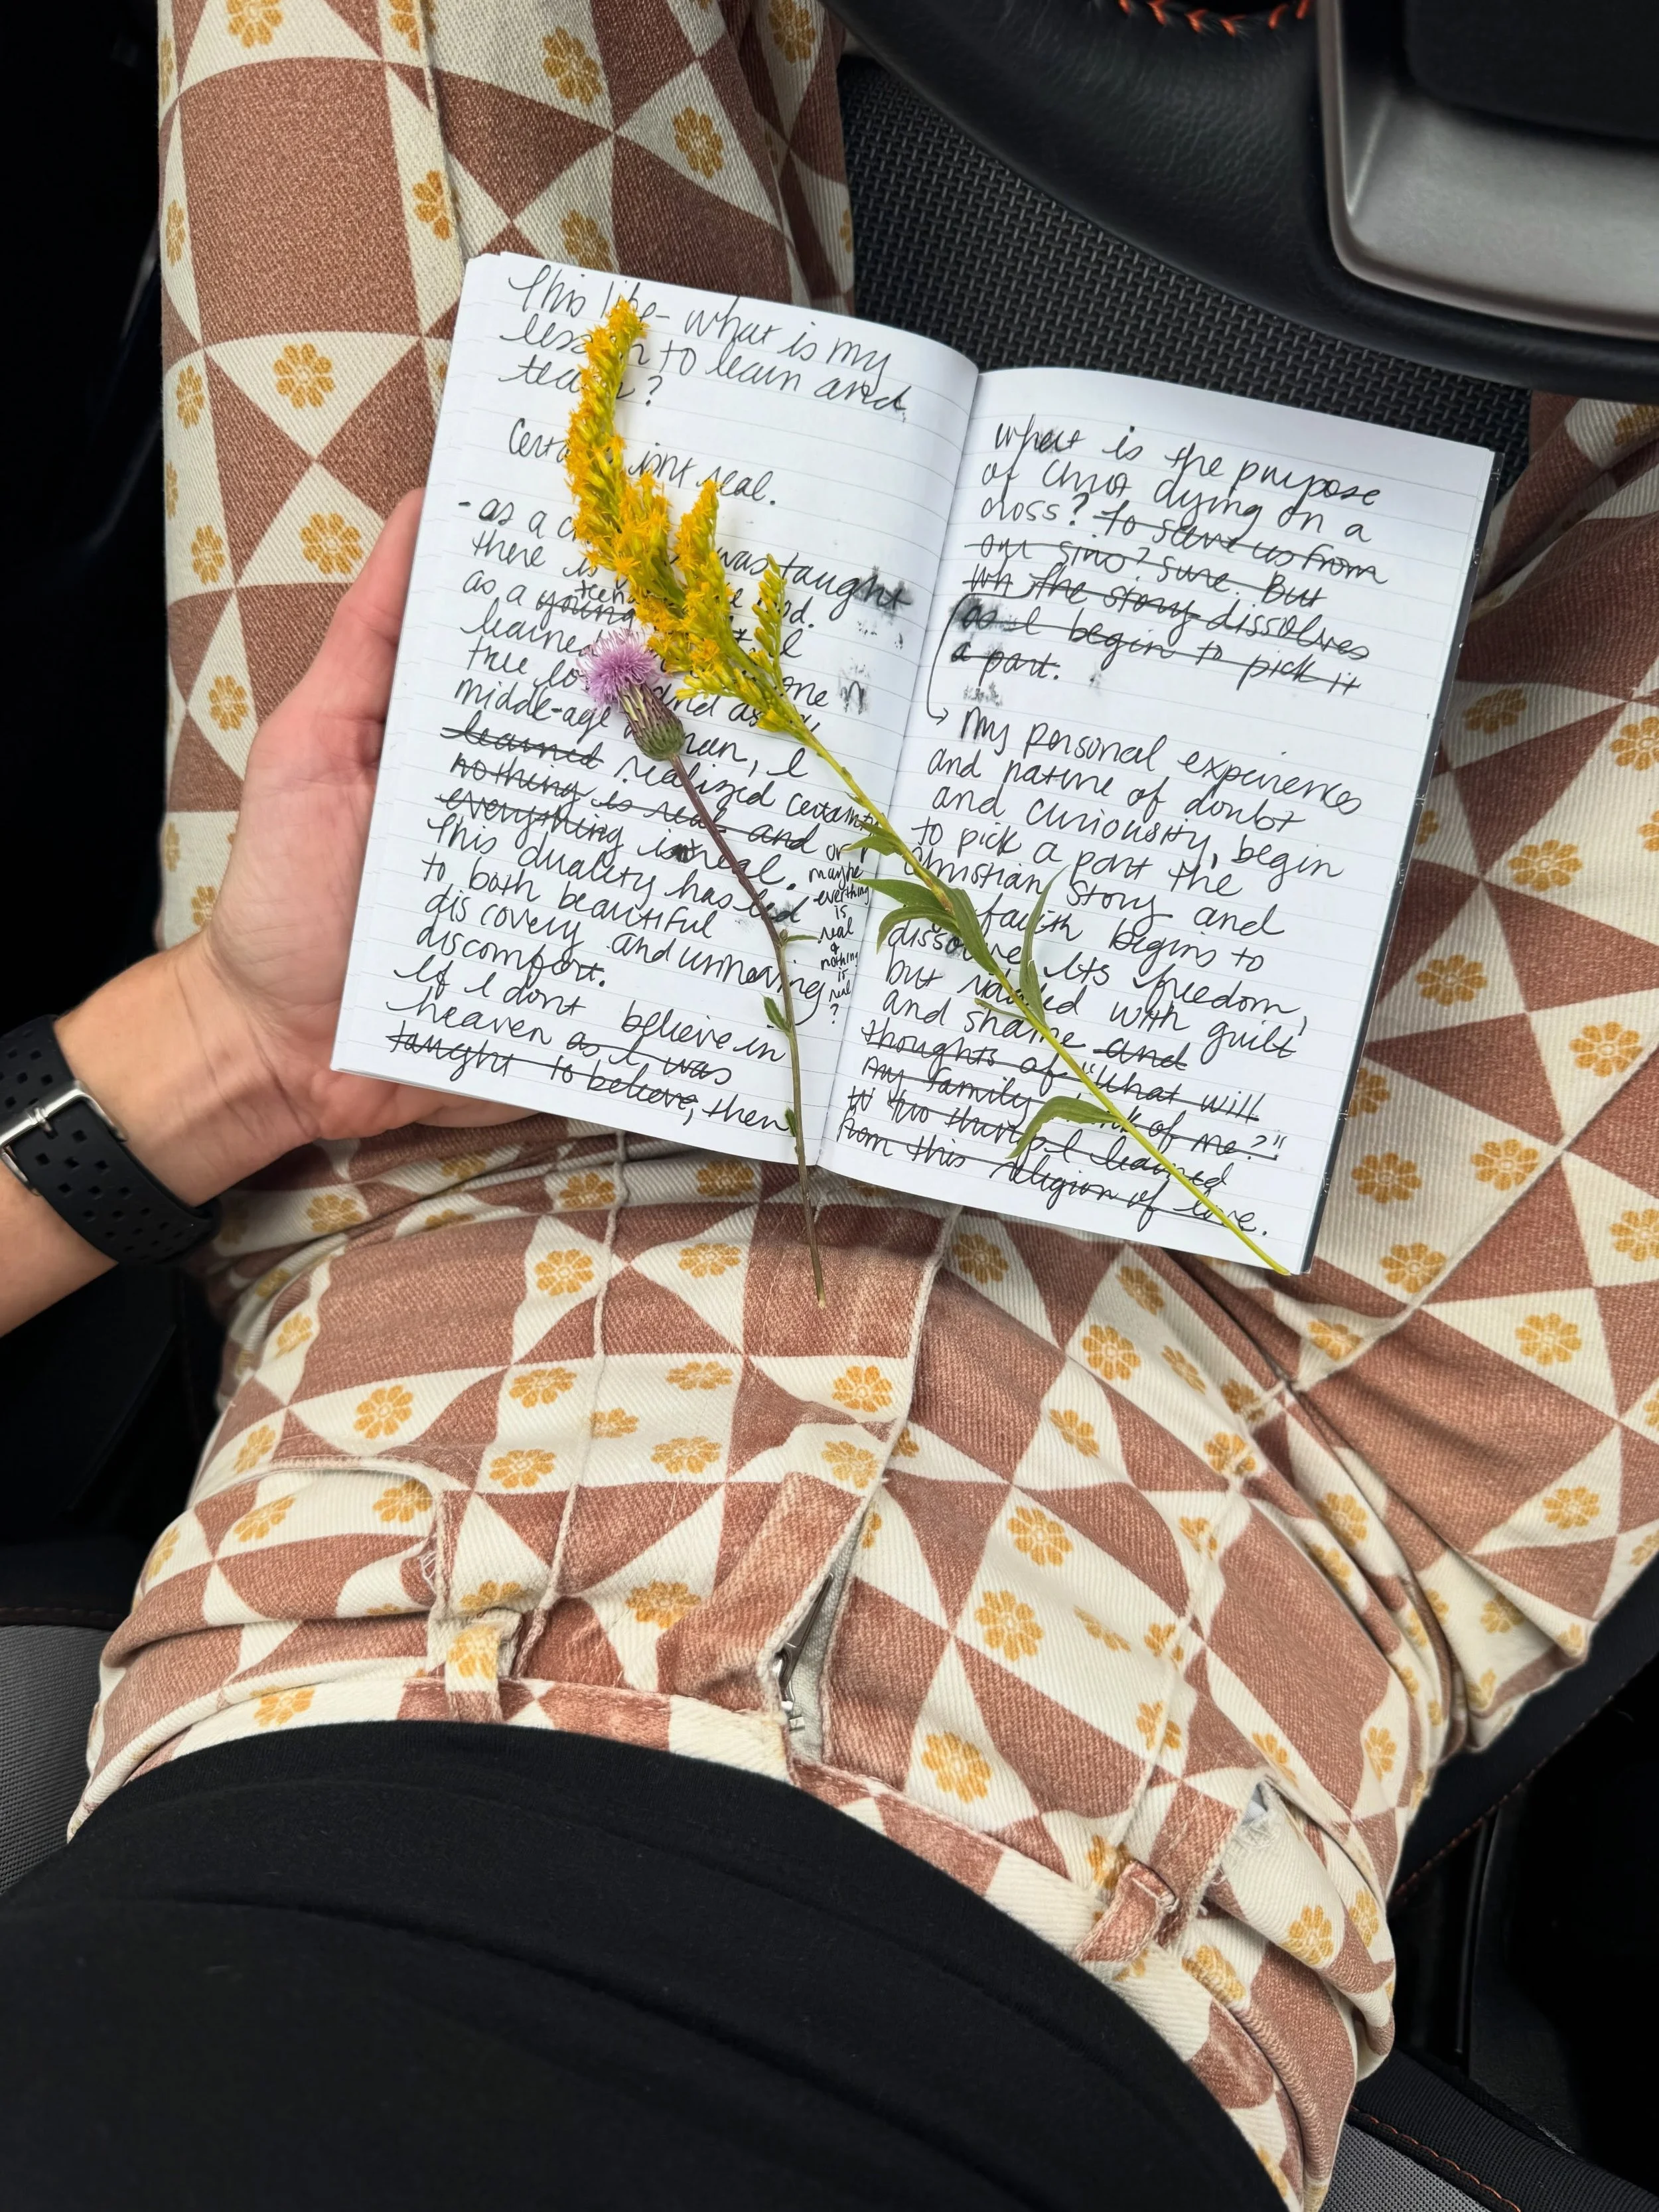 This life - what is my
lesson to learn and
teach?
Certainty isnt real.
- as a child was taught
there is God.
as a young teen
learned
true lo one
middle-age and as a
woman, I
learned realized certainty
nothing is real and or
everything isnt real. maybe
This duality has led everything
to both beautiful is
discovery and unnerving real
discomfort. &
If I dont believe in nothing
heaven as I was is
taught to believe, then real
?
what is the purpose
of Christ dying on a
cross? To save us from
our sins? Sure. But
the story dissolves
as I begin to pick it
a part.
My personal experiences
and nature of doubt
and curiousity, begin
to pick a part the
Christian Story and
faith begins to
dissolve. Its freedom,
but riddled with guilt
and shame and
thoughts of "what will
my family think of me?"
two things I learned
from this religion of love.